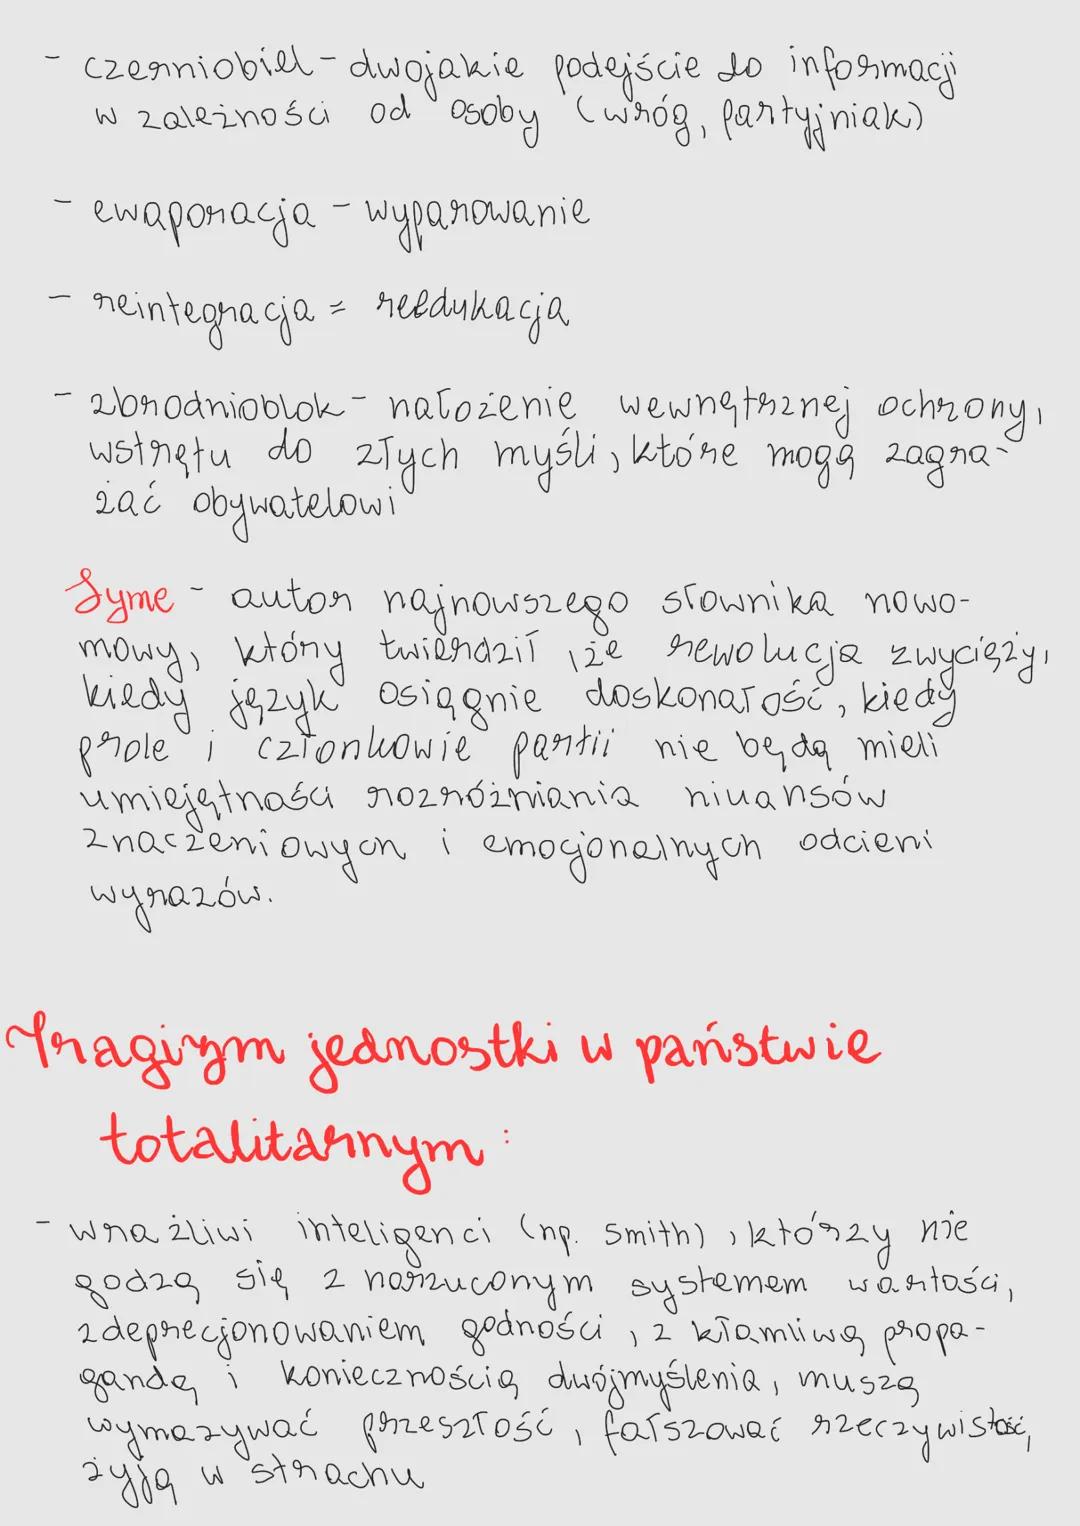 - czerniobiel - dwojakie podejście do informacji
w zależności od osoby (wróg, partyjniak)
- ewaporacja - wyparowanie
- reintegracja = reedukacja
- zbrodnioblok - nałożenie wewnętrznej ochrony,
wstrętu do złych myśli, które mogą zagra-
żać obywatelowi
Syme - autor najnowszego słownika nowo-
mowy, który twierdził, że rewolucja zwycięży,
kiedy język osiągnie doskonałość, kiedy
prole i członkowie partii nie będą mieli
umiejętności rozróżniania niuansów
znaczeniowych i emocjonalnych odcieni
wyrazów.
Tragizm jednostki w państwie
totalitarnym:
- wrażliwi inteligenci (np. Smith), którzy nie
godzą się z narzuconym systemem wartości,
zdeprecjonowaniem godności, z kłamliwą propa-
gandą i koniecznością dwójmyślenia, muszą
wymazywać przeszłość, fałszować rzeczywistość,
żyją w strachu